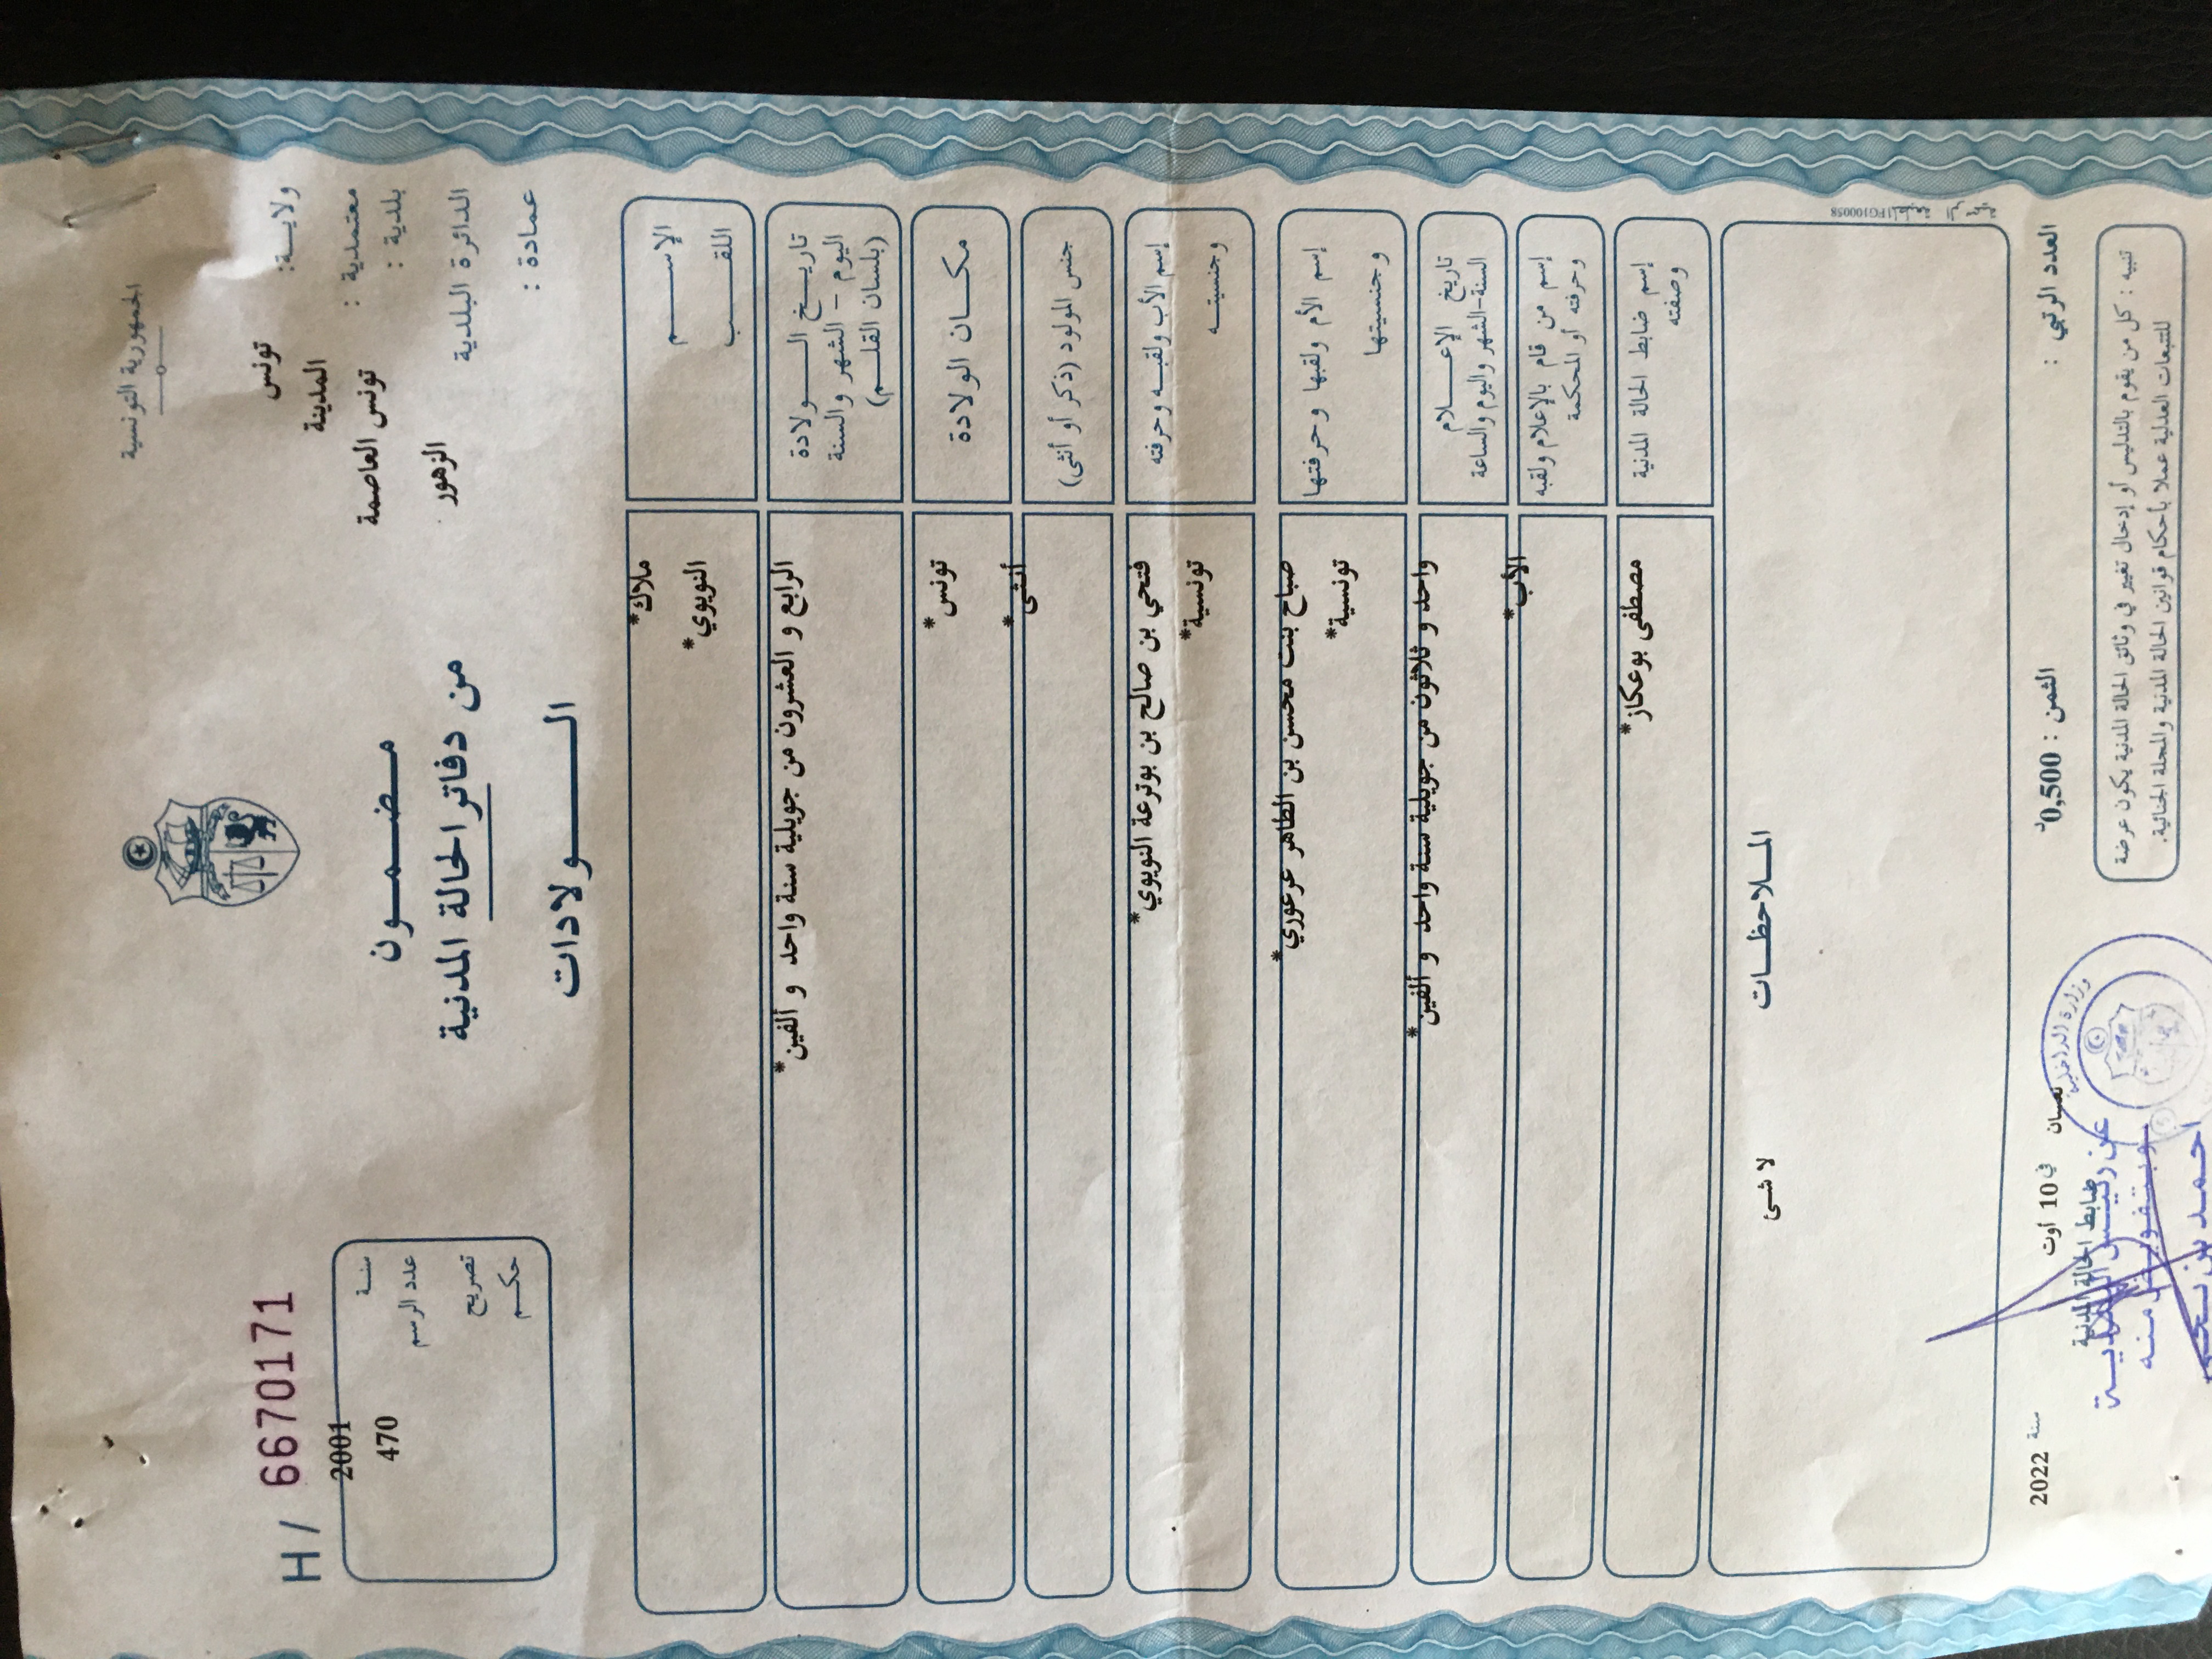 الجمهورية التونسية
ولايـــة: تونس
معتمدية : المدينة
بلدية : تونس العاصمة
الدائرة البلدية الزهور
عمادة :
مضمــون
من دفاتر الحالة المدنية
الـــولادات
H / 6670171
سنـة 2001
عدد الرسم 470
تصريح
حكــم
الإســـم ملاك*
اللقـــب النويوي*
تاريــخ الـــولادة
اليوم – الشهر والسنة
(بلسان القلـــم)
الرابع و العشرون من جويلية سنة واحد و ألفين*
مكـــان الولادة تونس*
جنس المولود (ذكر أو أنثى) أنثى*
إسم الأب ولقبـه وحرفته فتحي بن صالح بن بوترعة النويوي*
وجنسيتـــه تونسية*
إسم الأم ولقبها وحرفتها صباح بنت محسن بن الطاهر عرعوري*
وجنسيتها تونسية*
تاريخ الإعـــلام
السنة-الشهر واليوم والساعة
واحد و ثلاثون من جويلية سنة واحد و ألفين*
إسم من قام بالإعلام ولقبه
وحرفته أو المحكمة
الأب*
إسم ضابط الحالة المدنية
وصفته
مصطفى بوعكاز*
الملاحظــات
لا شئ
المطبعة الرسمية 1FG100058
العدد الرتبي :
الثمن : 0,500د
في 10 اوت سنة 2022
تنبيه : كل من يقوم بالتدليس أو إدخال تغيير في وثائق الحالة المدنية يكون عرضة
للتتبعات العدلية عملا بأحكام قوانين الحالة المدنية والمجلة الجنائية.
ضابط الحالة المدنية
وزارة الداخلية
عن رئيس البلدية
وبتفويض منه
احمد بن